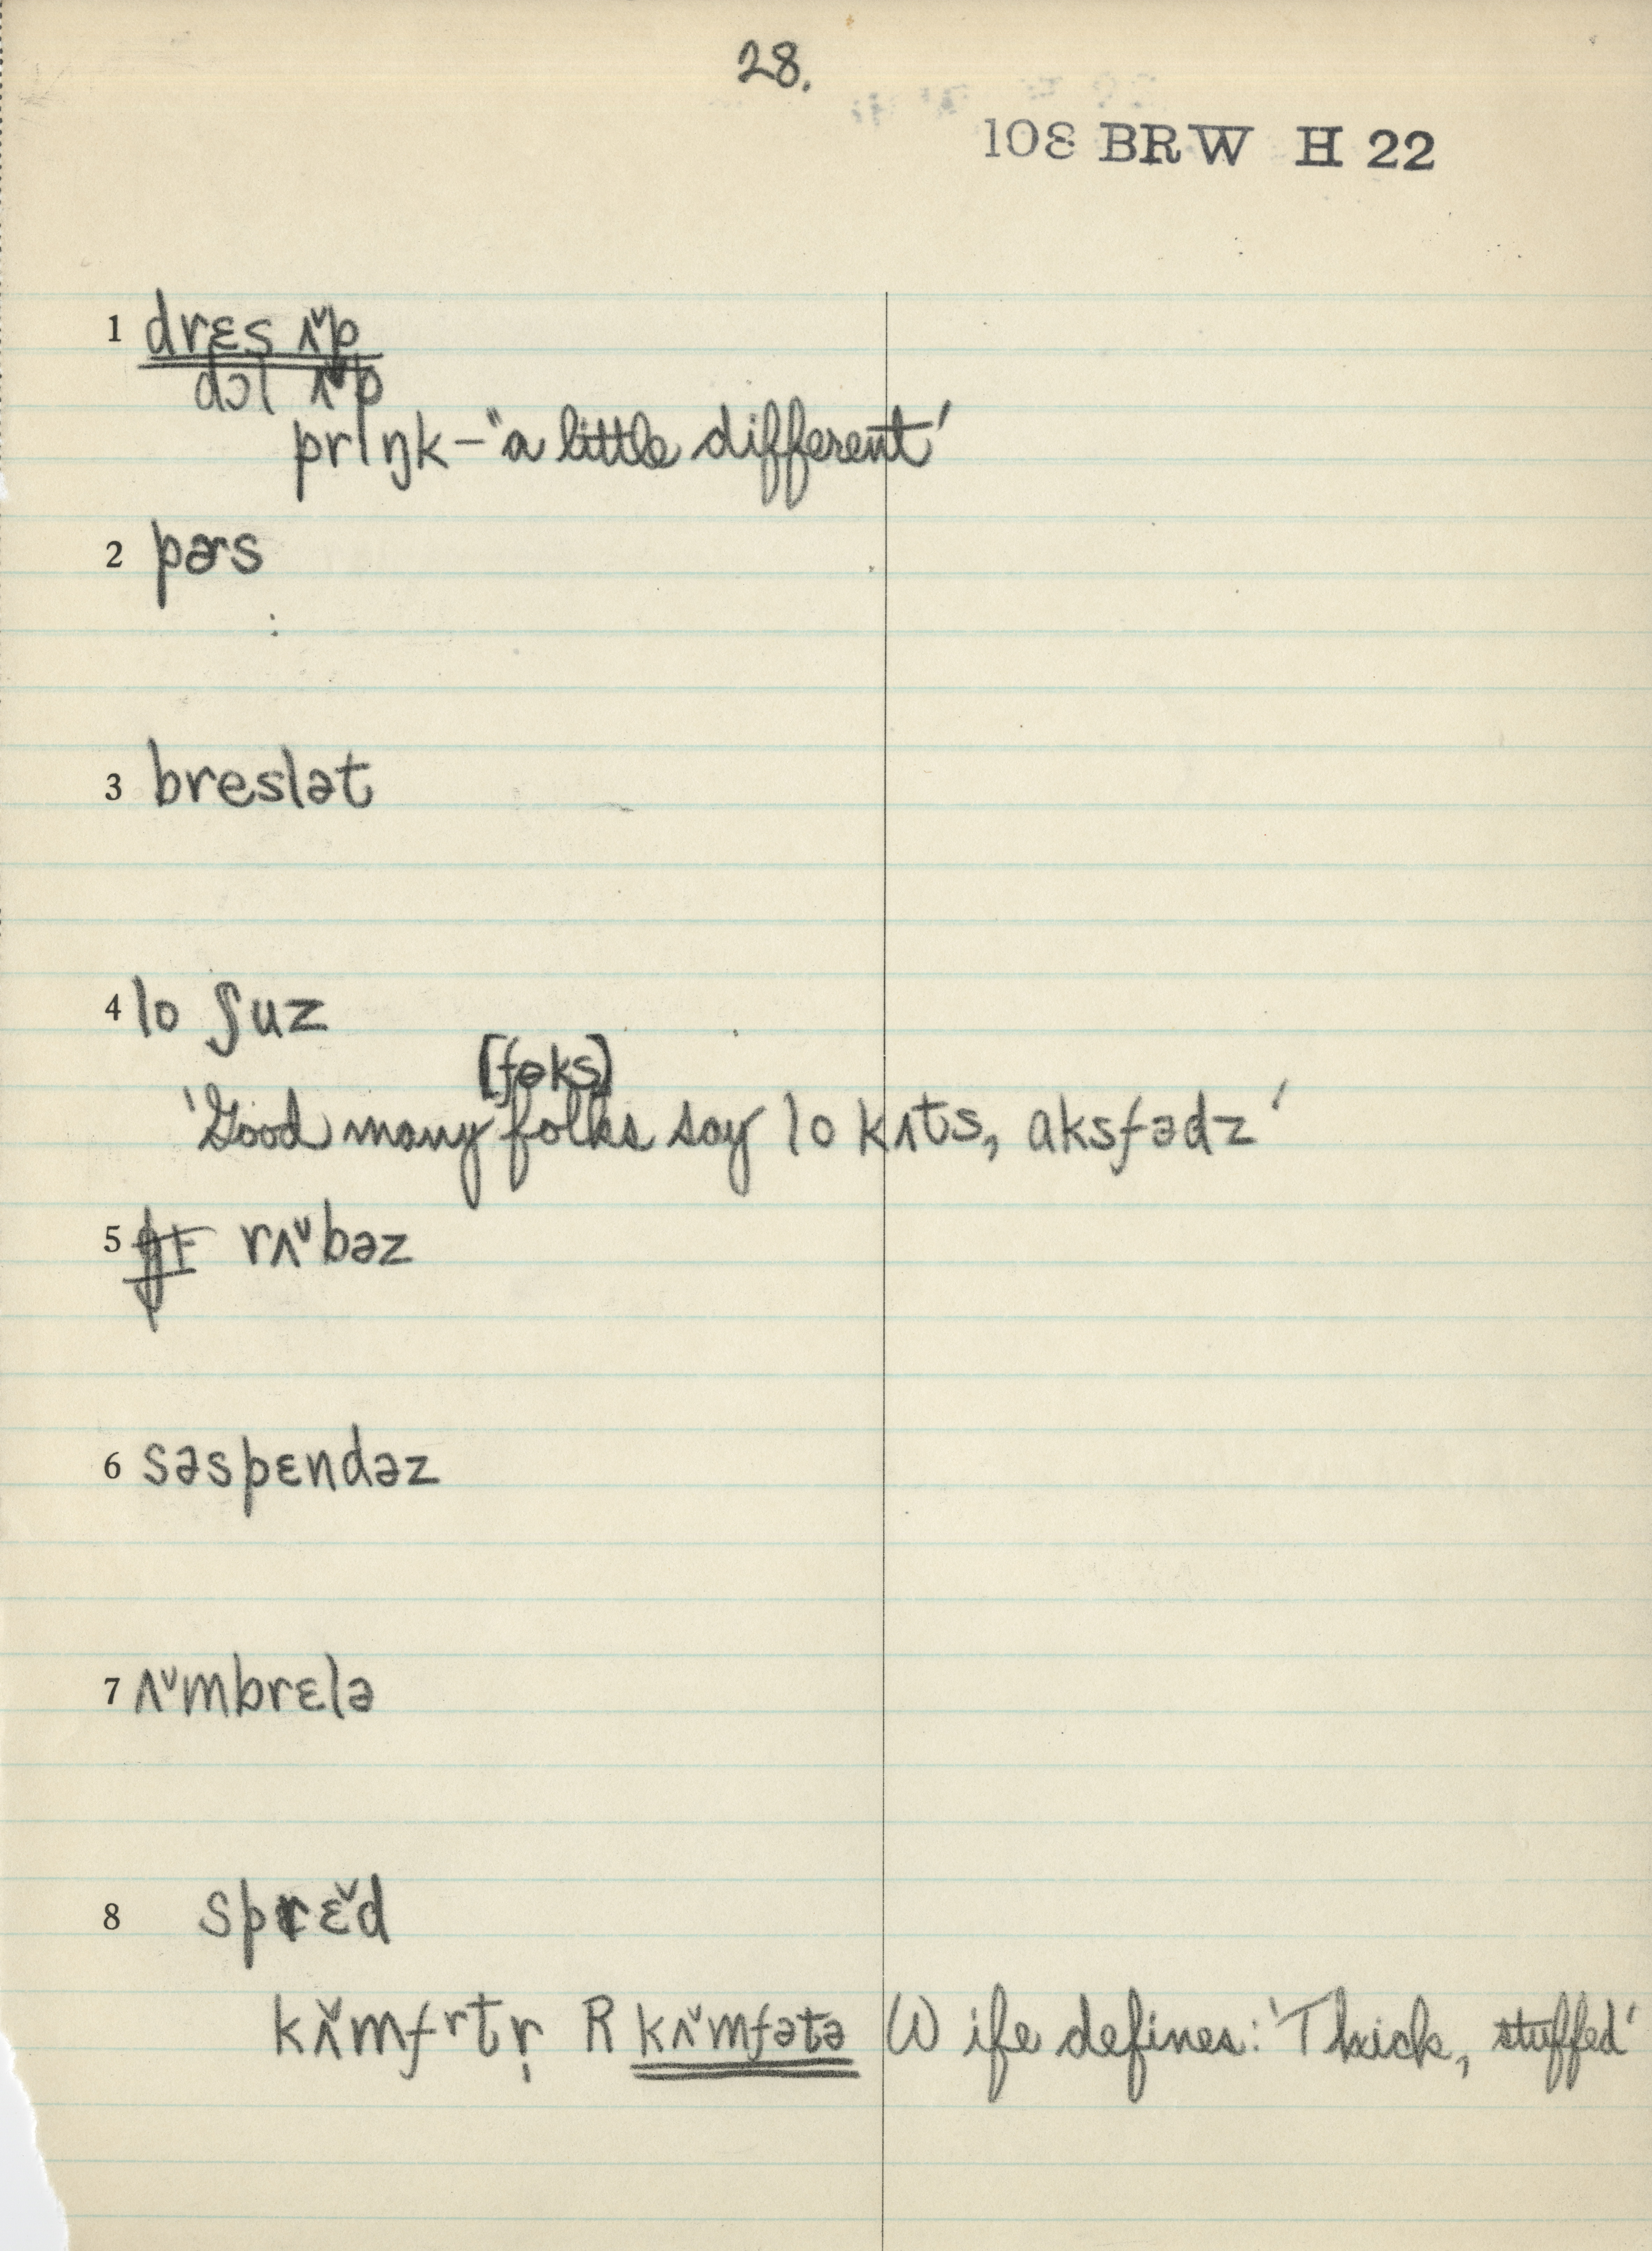 28.
108 BRW H 22
1 drɛs ʌ˅p
dɔl ʌ˅p
prɪŋk – "a little different'
2 pɚs
3 breslət
4 lo ʃuz
[fəks]
'Good many folks say lo kʌts, aksfədz'
5 rʌ˅bəz
6 səspɛndəz
7 ʌ˅mbrɛlə
8 sprɛ̌d
kʌ̌mfrtr̩ R kʌ˅mfətə Wife defines: 'Thick, stuffed'